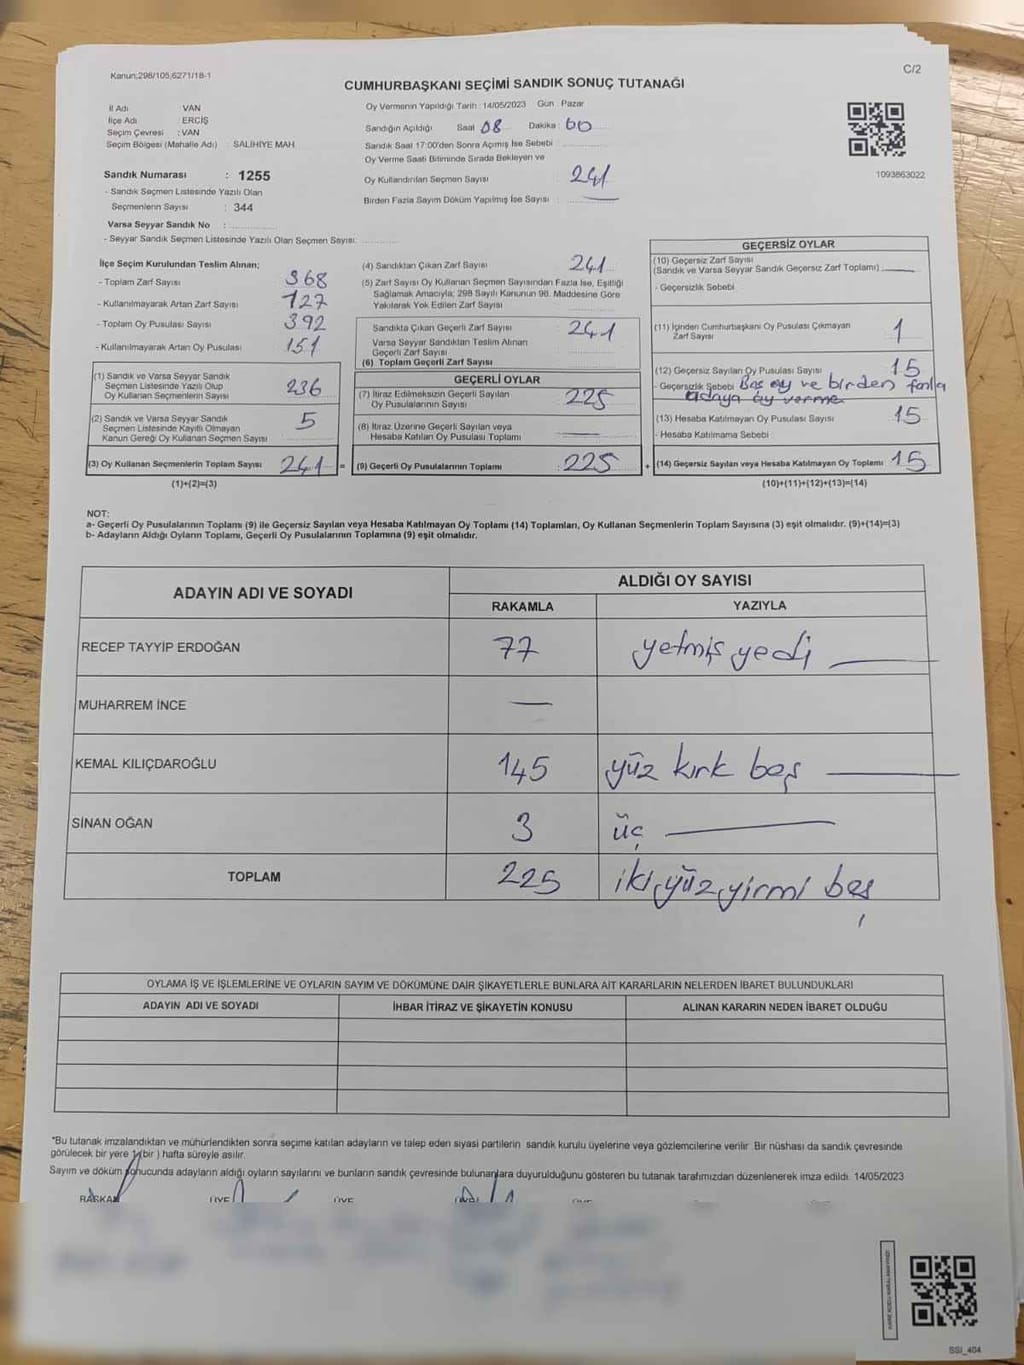 Kanun;298/105,6271/18-1
C/2
CUMHURBAŞKANI SEÇİMİ SANDIK SONUÇ TUTANAĞI
İl Adı VAN
İlçe Adı : ERCİŞ
Seçim Çevresi : VAN
Seçim Bölgesi (Mahalle Adı) : SALİHİYE MAH
Sandık Numarası : 1255
- Sandık Seçmen Listesinde Yazılı Olan
Seçmenlerin Sayısı : 344
Varsa Seyyar Sandık No :
- Seyyar Sandık Seçmen Listesinde Yazılı Olan Seçmen Sayısı:
Oy Vermenin Yapıldığı Tarih : 14/05/2023 Gün : Pazar
Sandığın Açıldığı Saat 08 Dakika : 00
Sandık Saat 17:00'den Sonra Açımış İse Sebebi
Oy Verme Saati Bitiminde Sırada Bekleyen ve
Oy Kullandırılan Seçmen Sayısı 241
Birden Fazla Sayım Döküm Yapılmış İse Sayısı : —
1093863022
İlçe Seçim Kurulundan Teslim Alınan;
- Toplam Zarf Sayısı 368
- Kullanılmayarak Artan Zarf Sayısı 127
- Toplam Oy Pusulası Sayısı 392
- Kullanılmayarak Artan Oy Pusulası 151
(1) Sandık ve Varsa Seyyar Sandık
Seçmen Listesinde Yazılı Olup
Oy Kullanan Seçmenlerin Sayısı 236
(2) Sandık ve Varsa Seyyar Sandık
Seçmen Listesinde Kayıtlı Olmayan
Kanun Gereği Oy Kullanan Seçmen Sayısı 5
(3) Oy Kullanan Seçmenlerin Toplam Sayısı 241 =
(1)+(2)=(3)
(4) Sandıktan Çıkan Zarf Sayısı 241
(5) Zarf Sayısı Oy Kullanan Seçmen Sayısından Fazla İse, Eşitliği
Sağlamak Amacıyla; 298 Sayılı Kanunun 98. Maddesine Göre
Yakılarak Yok Edilen Zarf Sayısı
Sandıkta Çıkan Geçerli Zarf Sayısı 241
Varsa Seyyar Sandıktan Teslim Alınan
Geçerli Zarf Sayısı
(6) Toplam Geçerli Zarf Sayısı
GEÇERLİ OYLAR
(7) İtiraz Edilmeksizin Geçerli Sayılan
Oy Pusulalarının Sayısı 225
(8) İtiraz Üzerine Geçerli Sayılan veya
Hesaba Katılan Oy Pusulası Toplamı —
(9) Geçerli Oy Pusulalarının Toplamı 225 +
GEÇERSİZ OYLAR
(10) Geçersiz Zarf Sayısı
(Sandık ve Varsa Seyyar Sandık Geçersiz Zarf Toplamı) —
- Geçersizlik Sebebi
(11) İçinden Cumhurbaşkanı Oy Pusulası Çıkmayan
Zarf Sayısı 1
(12) Geçersiz Sayılan Oy Pusulası Sayısı 15
- Geçersizlik Sebebi Boş oy ve birden fazla
adaya oy verme
(13) Hesaba Katılmayan Oy Pusulası Sayısı 15
- Hesaba Katılmama Sebebi
(14) Geçersiz Sayılan veya Hesaba Katılmayan Oy Toplamı 15
(10)+(11)+(12)+(13)=(14)
NOT:
a- Geçerli Oy Pusulalarının Toplamı (9) ile Geçersiz Sayılan veya Hesaba Katılmayan Oy Toplamı (14) Toplamları, Oy Kullanan Seçmenlerin Toplam Sayısına (3) eşit olmalıdır. (9)+(14)=(3)
b- Adayların Aldığı Oyların Toplamı, Geçerli Oy Pusulalarının Toplamına (9) eşit olmalıdır.
ADAYIN ADI VE SOYADI ALDIĞI OY SAYISI
RAKAMLA YAZIYLA
RECEP TAYYİP ERDOĞAN 77 yetmiş yedi
MUHARREM İNCE —
KEMAL KILIÇDAROĞLU 145 yüz kırk beş
SİNAN OĞAN 3 üç
TOPLAM 225 iki yüz yirmi beş
OYLAMA İŞ VE İŞLEMLERİNE VE OYLARIN SAYIM VE DÖKÜMÜNE DAİR ŞİKAYETLERLE BUNLARA AİT KARARLARIN NELERDEN İBARET BULUNDUKLARI
ADAYIN ADI VE SOYADI İHBAR İTİRAZ VE ŞİKAYETİN KONUSU ALINAN KARARIN NEDEN İBARET OLDUĞU
*Bu tutanak imzalandıktan ve mühürlendikten sonra seçime katılan adayların ve talep eden siyasi partilerin sandık kurulu üyelerine veya gözlemcilerine verilir. Bir nüshası da sandık çevresinde
görülecek bir yere 1 (bir) hafta süreyle asılır.
Sayım ve döküm sonucunda adayların aldığı oyların sayılarını ve bunların sandık çevresinde bulunanlara duyurulduğunu gösteren bu tutanak tarafımızdan düzenlenerek imza edildi. 14/05/2023
BAŞKAN ÜYE ÜYE
SSI_404